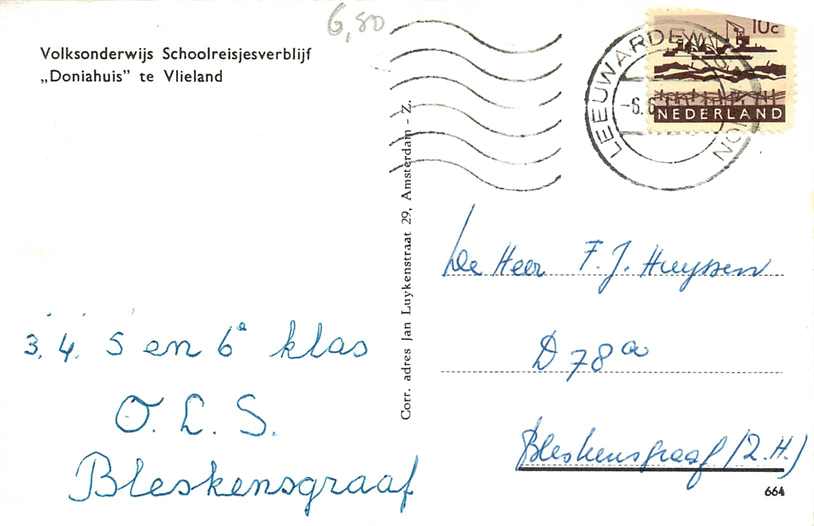 6,50
Volksonderwijs Schoolreisjesverblijf
„Doniahuis” te Vlieland
3. 4. 5 en 6e klas
O. L. S.
Bleskensgraaf
Corr. adres Jan Luykenstraat 29, Amsterdam - Z.
LEEUWARDEN
-6.6
10c
NEDERLAND
De Heer F. J. Huyssen
D 78a
Bleskensgraaf (Z.H.)
664